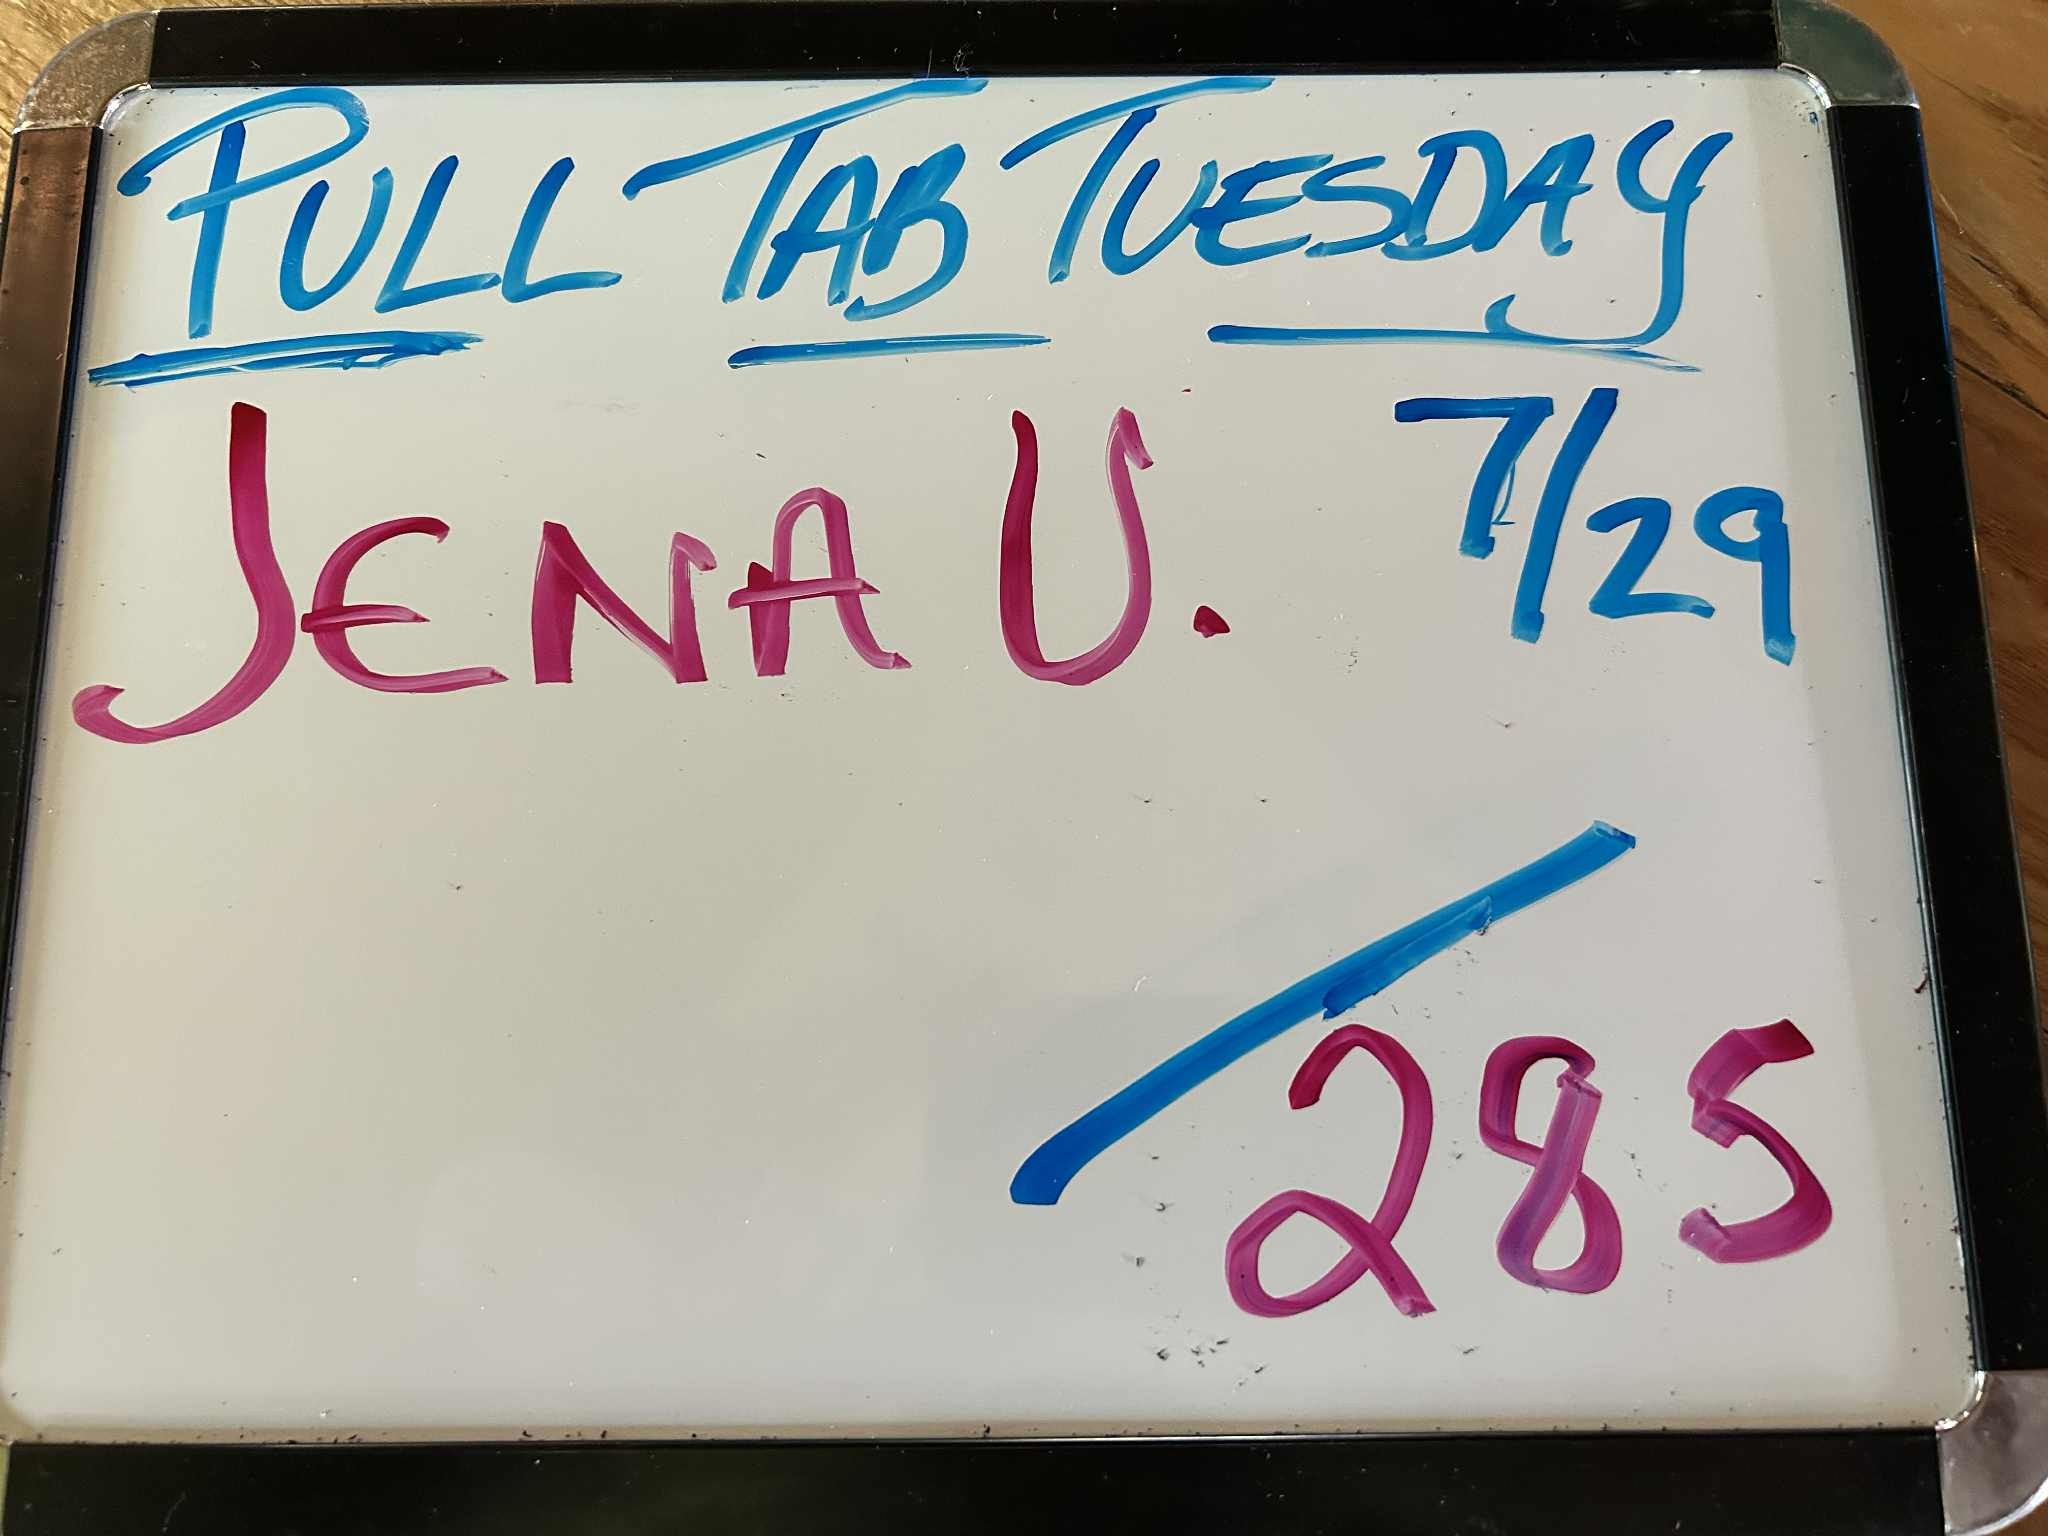 PULL TAB TUESDAY
JENA U. 7/29
/285